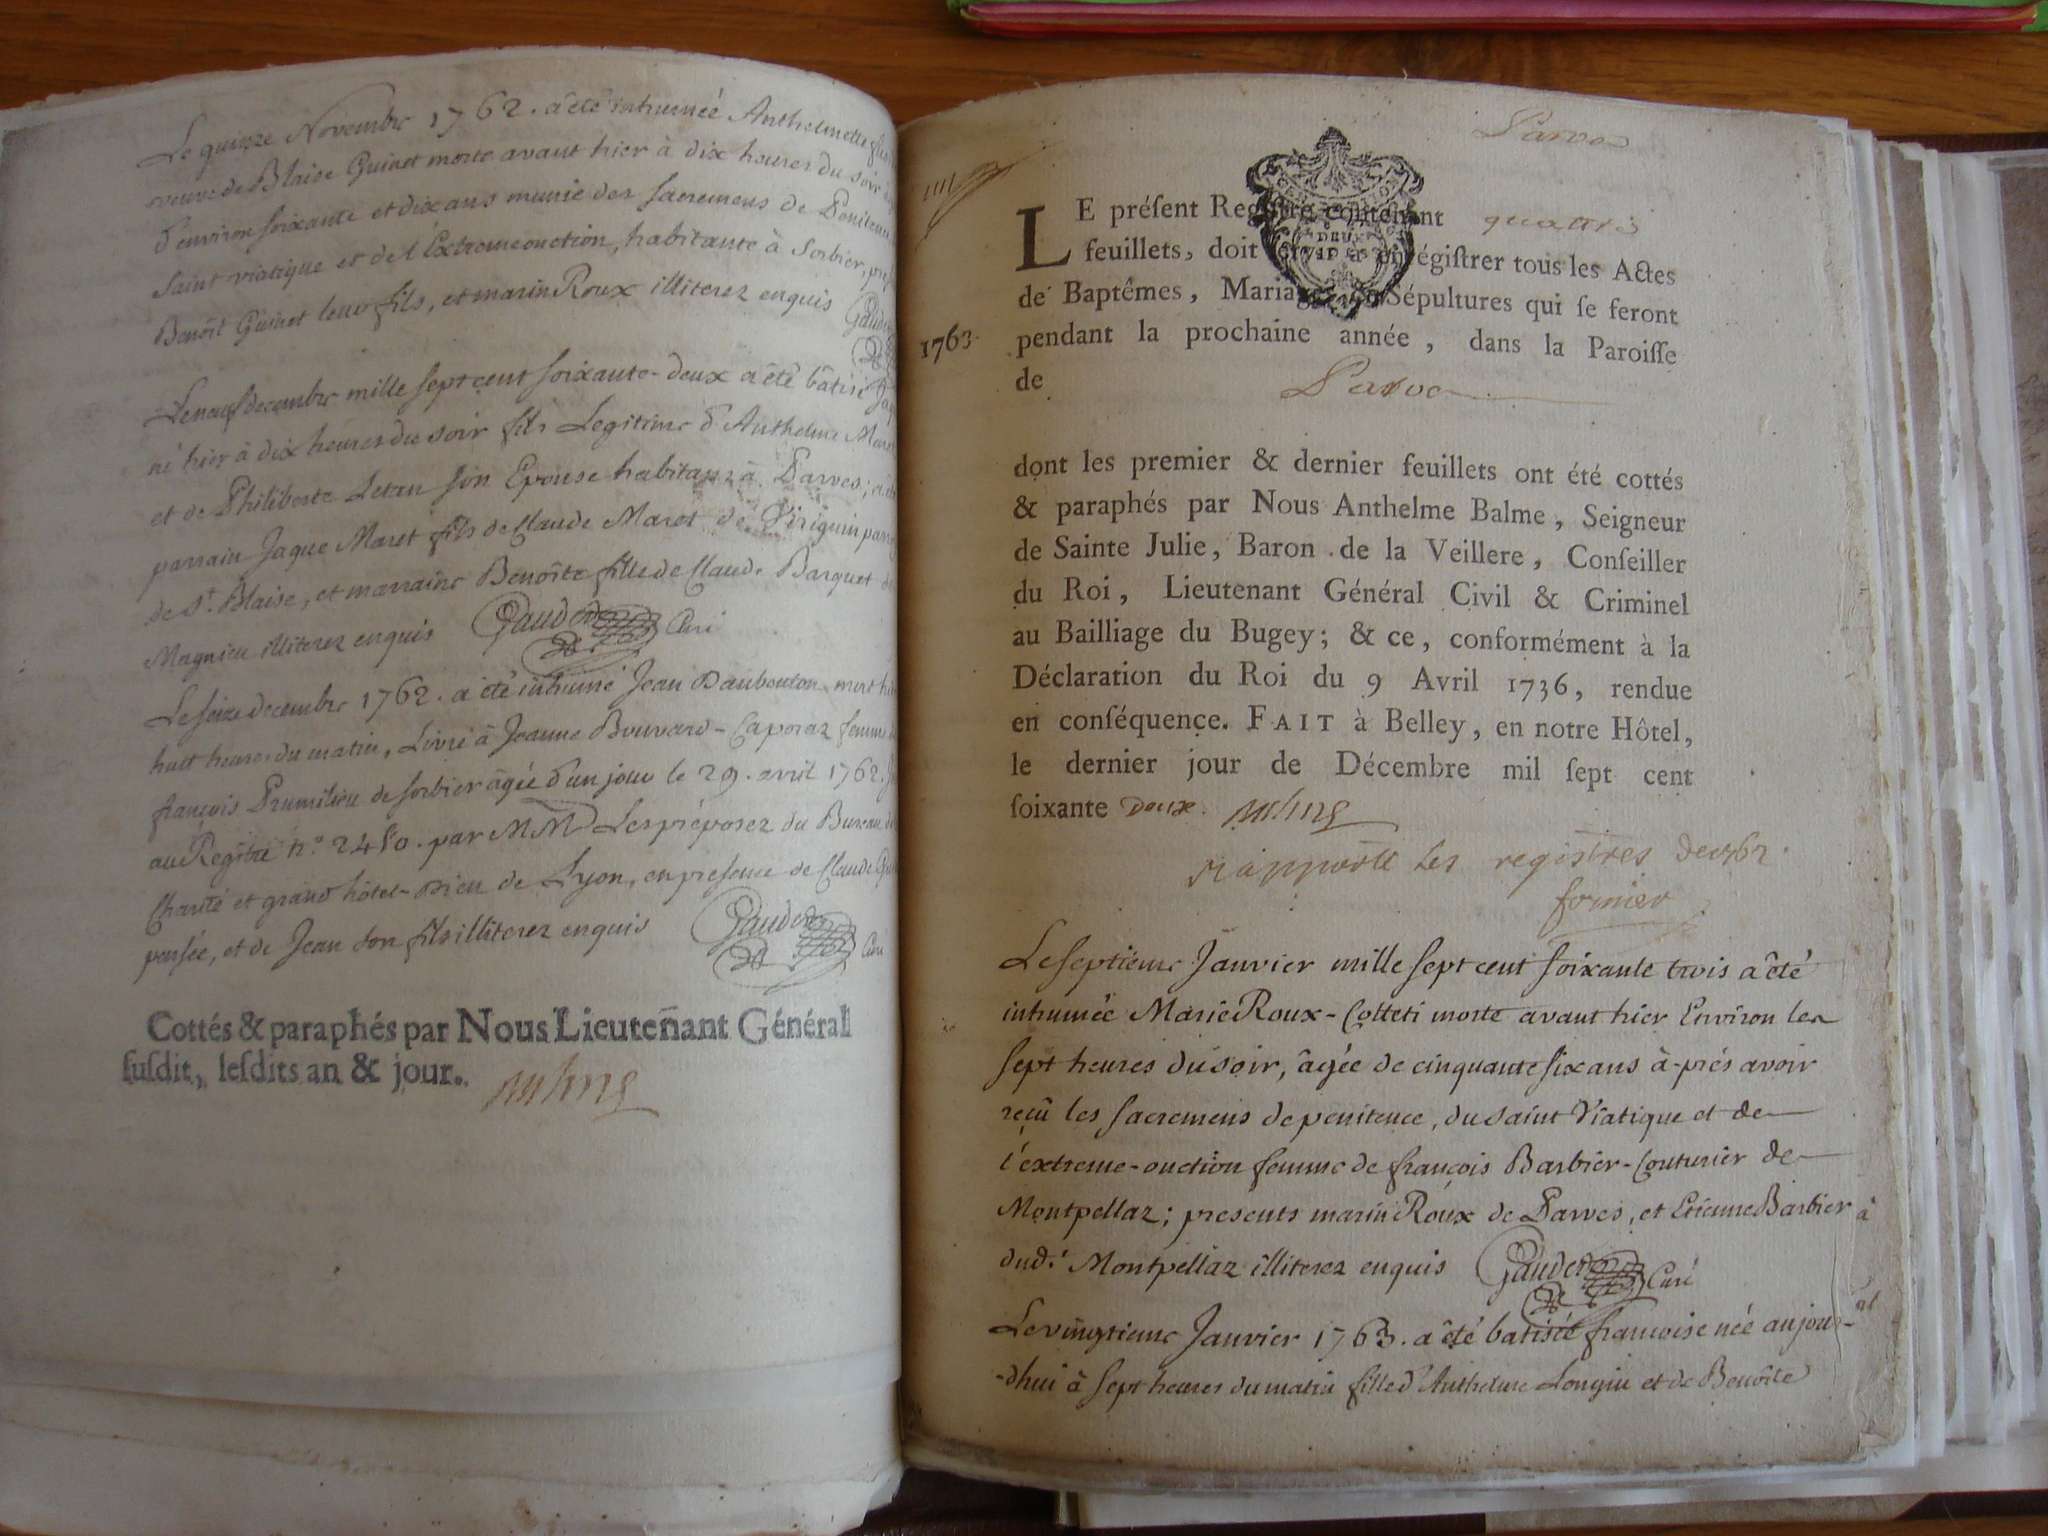 Le quinze Novembre 1762. a été inhumée Anthelmette
veuve de Blaise Guinet morte avant hier à dix heures du soir
d'environ soixante et dix ans munie des sacremens de Penitence
saint viatique et de l'Extreme onction, habitante à Sorbier,
Benoît Guinet leur fils, et marin Roux illiterez enquis
Le neuf decembre mille sept cent soixante-deux a été bâtisé
né hier à dix heures du soir fils Legitime d'Anthelme
et de Philiberte Letan son Epouse habitans à Parves;
parrain Jaque Maret fils de Claude Maret de Viriguin
de St. Blaise, et marraine Benoîte fille de Claude Barquet
Magnieu illiterez enquis Gaudet Curé
Le seize decembre 1762. a été inhumé Jean Daubenton mort
huit heures du matin, Livré à Jeanne Bouvard-Caporaz femme
françois Prumilieu de sorbier âgée d'un jour le 29. avril 1762.
au Regître n.o 2450. par MM Les préposez du Bureau
Charité et grand hôtel-Dieu de Lyon, en presence de Claude
pensée, et de Jean son fils illiterez enquis Gaudet Curé
Cottés & paraphés par Nous Lieutenant Général
susdit, lesdits an & jour.
IIII
Parves
LE présent Registre contenant quattre
DEUX
feuillets, doit servir à enrégistrer tous les Actes
de Baptêmes, Mariages & Sépultures qui se feront
1763. pendant la prochaine année, dans la Paroisse
de Parve
dont les premier & dernier feuillets ont été cottés
& paraphés par Nous Anthelme Balme, Seigneur
de Sainte Julie, Baron de la Veillere, Conseiller
du Roi, Lieutenant Général Civil & Criminel
au Bailliage du Bugey; & ce, conformément à la
Déclaration du Roi du 9 Avril 1736, rendue
en conséquence. FAIT à Belley, en notre Hôtel,
le dernier jour de Décembre mil sept cent
soixante Deux.
rapporté les registres de 1762.
fornier
Le septieme Janvier mille sept cent soixante trois a été
inhumée Marie Roux-Colleti morte avant hier Environ les
sept heures du soir, âgée de cinquante six ans à-prés avoir
reçû les sacremens de penitence, du saint Viatique et de
l'extreme-onction femme de françois Barbier-Couturier de
Montpellaz; presents marin Roux de Parves, et Etienne Barbier à
dud.t Montpellaz illiterez enquis Gaudet Curé
Le vingtieme Janvier 1763. a été batisée francoise née aujour-
-dhui à sept heures du matin fille d'Anthelme Longin et de Benoîte